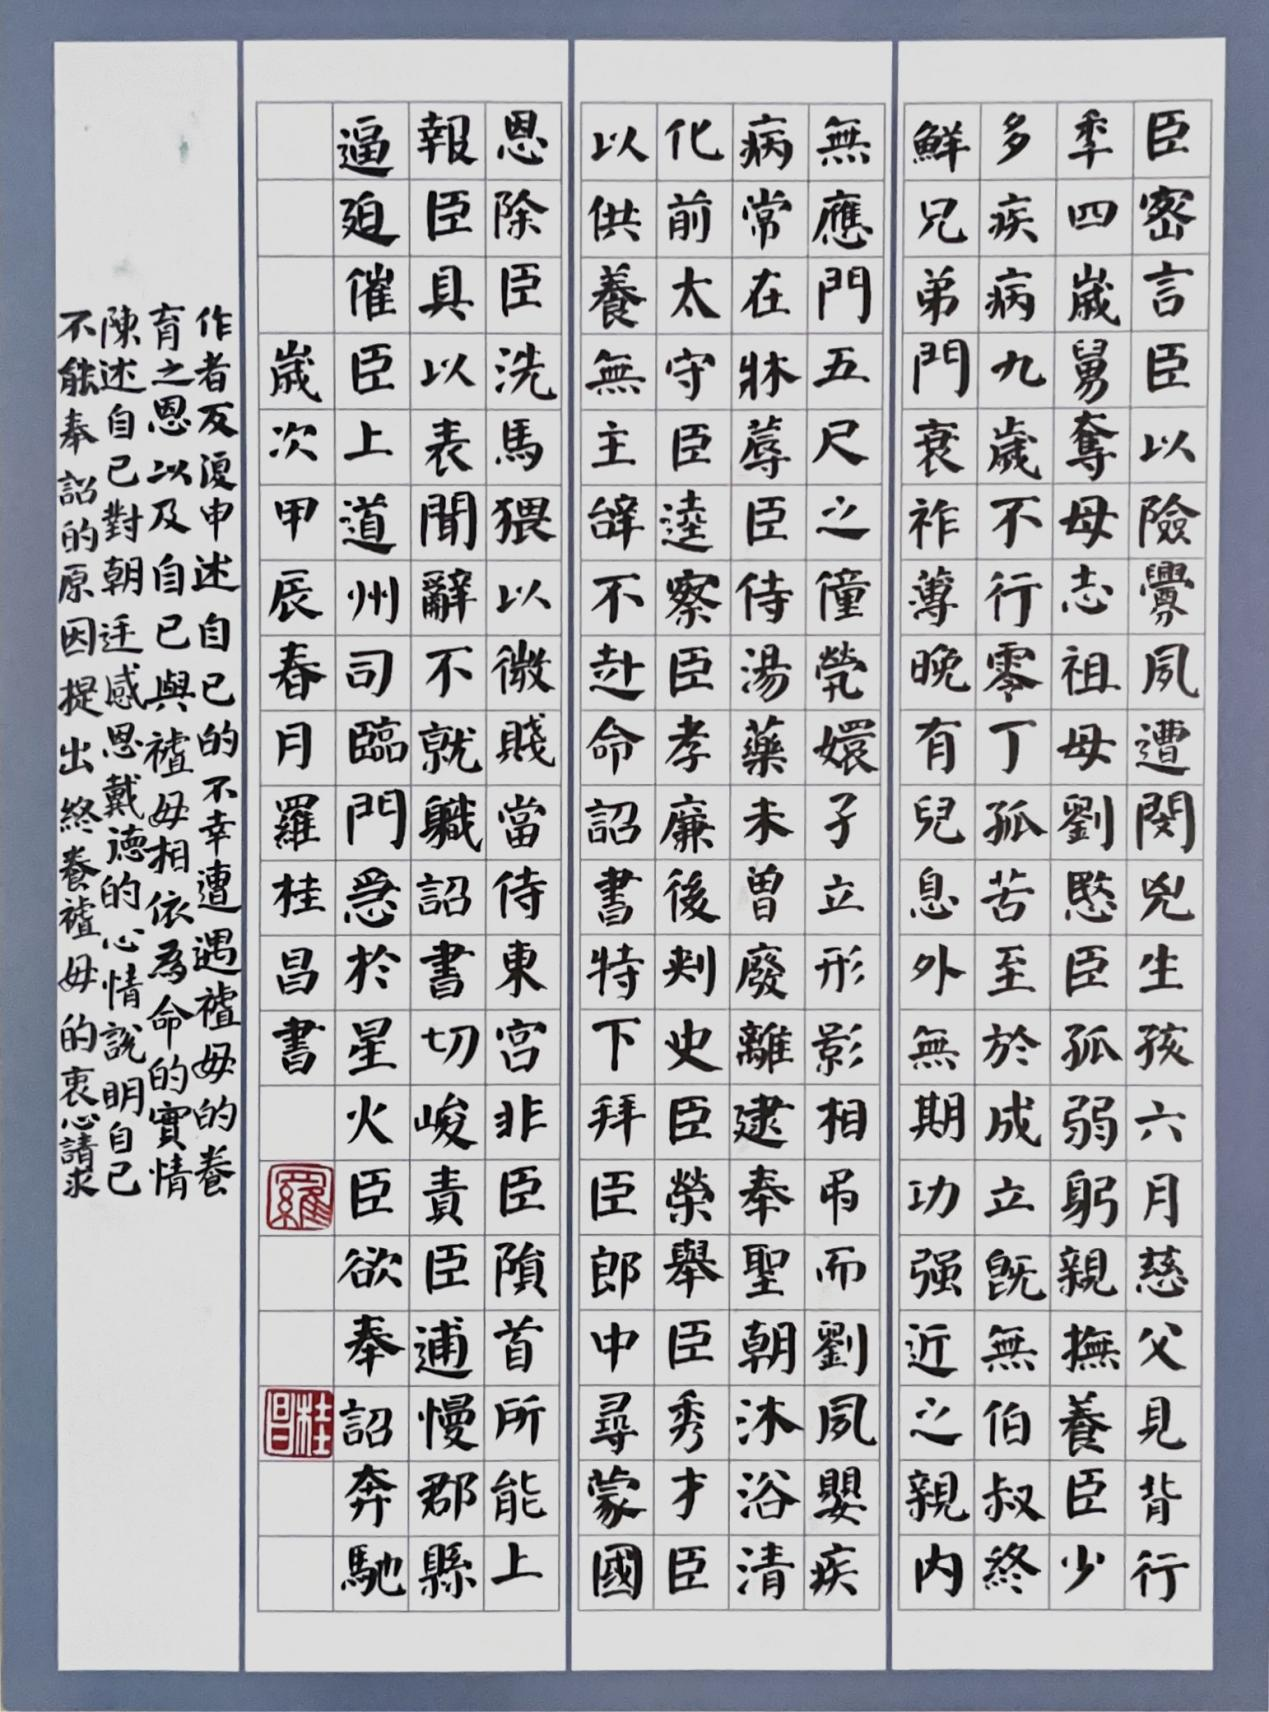 臣密言臣以險釁夙遭閔兇生孩六月慈父見背行
秊四歲舅奪母志祖母劉愍臣孤弱躬親撫養臣少
多疾病九歲不行零丁孤苦至於成立既無伯叔終
鮮兄弟門衰祚薄晚有兒息外無期功强近之親内
無應門五尺之僮煢嬛孑立形影相弔而劉夙嬰疾
病常在牀蓐臣侍湯藥未曾廢離逮奉聖朝沐浴清
化前太守臣逵察臣孝廉後刺史臣榮舉臣秀才臣
以供養無主辭不赴命詔書特下拜臣郎中尋蒙國
恩除臣洗馬猥以微賤當侍東宮非臣隕首所能上
報臣具以表聞辭不就職詔書切峻責臣逋慢郡縣
逼迫催臣上道州司臨門急於星火臣欲奉詔奔馳
歲次甲辰春月羅桂昌書
羅
桂昌
作者反復申述自己的不幸遭遇禇母的養
育之恩以及自己與禇母相依為命的實情
陳述自己對朝廷感恩戴德的心情說明自己
不能奉詔的原因提出終養禇母的衷心請求